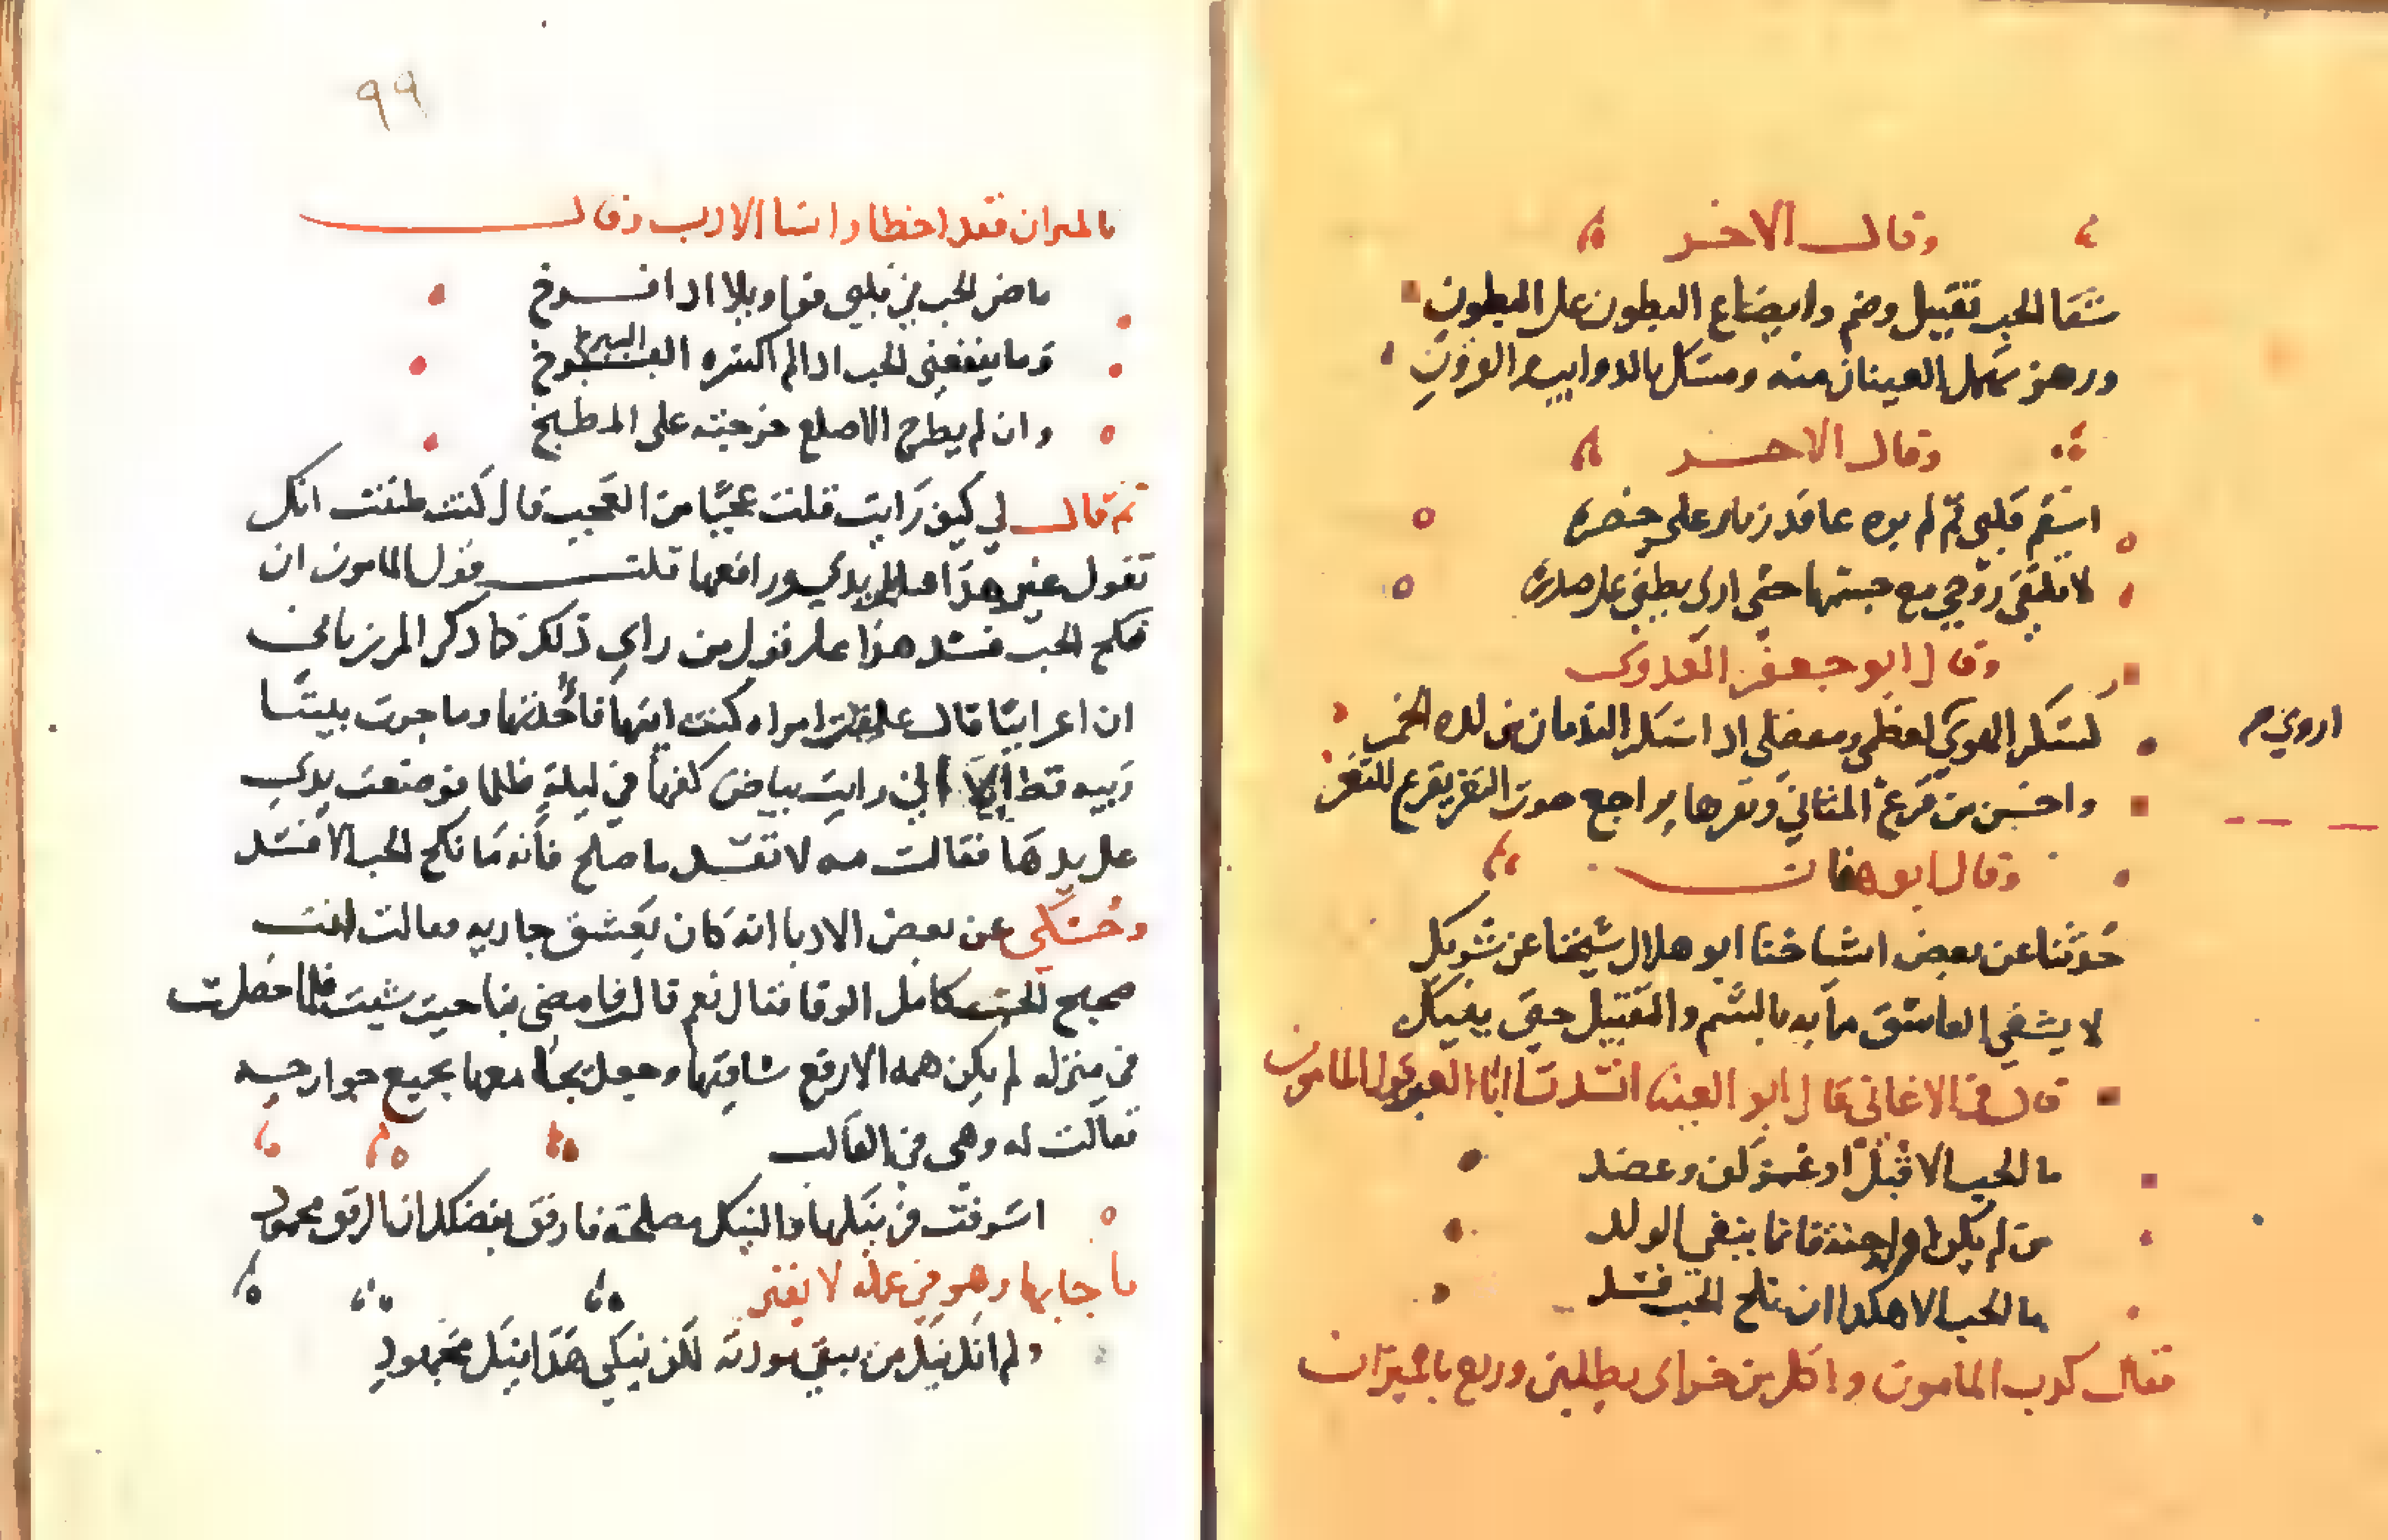 وقال الاخر
شفا الحب تقبيل وضم وايضاع البطون على البطون
ورهز تهمل العينان منه ومسك بالدوايب والقرون
وقال الاخر
اسقم قلبي ثم لم يبره عاقد زنار على خصره
لا تلتقي روحي مع جسمها حتى ارى بطني على صدره
وقال ابو جعفر العدوى
لسكر الهوى اروى لعظمي ومفصلي اذا سكر الندمان من لذه الخمر
واحسن من قرع المثاني ونقرها تراجع صوت الثغر يقرع للثغر
وقال ابو هفان
حدثنا عن بعض اشياخنا ابو هلال شيخنا عن شريك
لا يشفي العاشق ما به بالشم والتقبيل حتى ينيك
قال في الاغاني قال ابو العينا انشدت ابا العبر قول المامون
ما الحب الا قبل او غمز كف وعضد
من لم يكن ذا حبه فانما يبغي الولد
ما الحب الا هكذا ان نكح الحب فسد
فقال كذب المامون واكل من خراى رطلين وربع بالميزان
٩٩
بالميزان فقد اخطا واسا الادب وقال
ما ض الحب في قلبي فوا ويلا اذا فرخ
وما ينفعني الحب اذا لم اكنس البربخ
وان لم يطرح الاصلع خرجيته على المطبخ
ثم قال لي كيف رايت قلت عجبا من العجب قال كنت ظننت انك
تقول غير هذا فابل يدي ورافعها قلت قول المامون ان
نكح الحب فسد هذا على قول من راى ذلك كما ذكر المرزباني
ان اعرابيا قال علقت امراه كنت اتيها فاحدثها وما جرت بيننا
ريبه قط الا اني رايت بياض كفها في ليلة ظلما فوضعت يدي
على يدها فقالت مه لا تفسد ما صلح فانه ما نكح الحب الا فسد
وحكي عن بعض الادبا انه كان يعشق جاريه فقالت انت
صحيح الحب كامل الوفا فقال نعم قالت فامضي بنا حيث شيت فلما حصلت
في منزله لم يكن همه الا رفع ساقيها وجعل يجامعها بجميع جوارحه
فقالت له وهي في القالب
اسرفت في نيكها والنيك مصلحة فارفق بفضلك ان الرفق محمود
فاجابها وهو في عمله لا يفتر
ولم انك نيك من يبقي مودته لكن نيكي هذا نيك مجهود